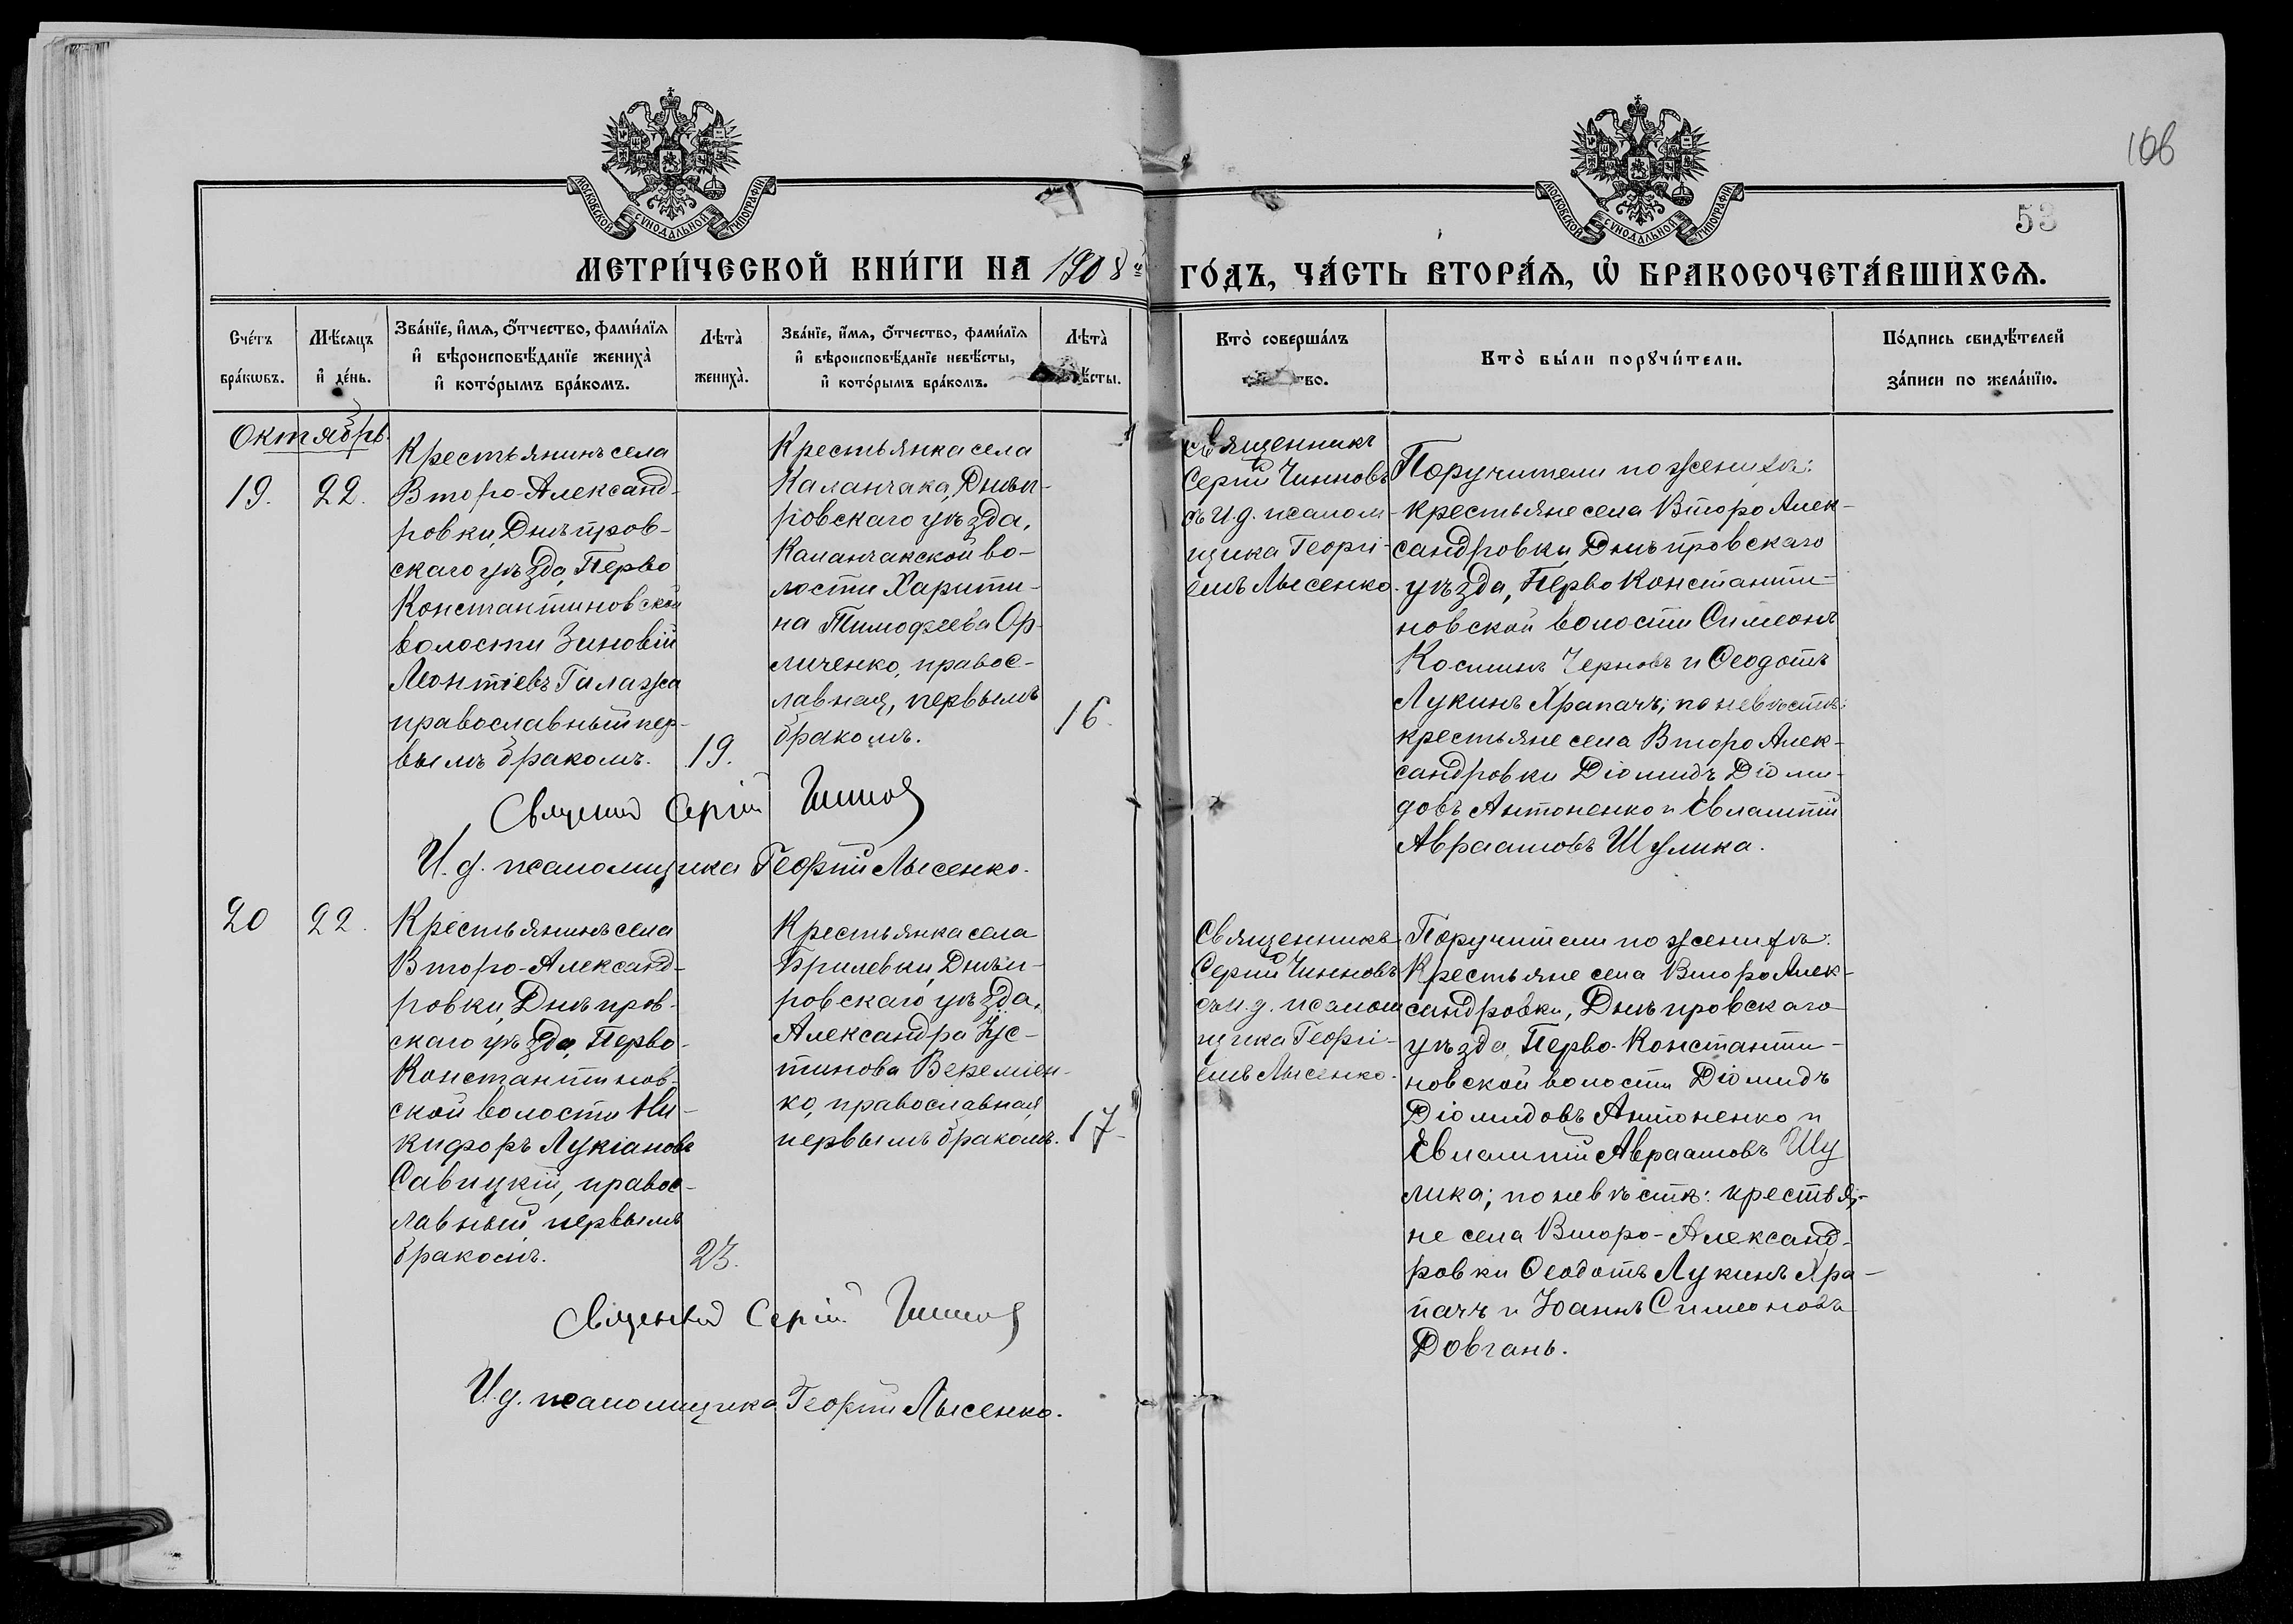 106
53
МОСКОВСКОЙ СѴНОДАЛЬНОЙ ТИПОГРАФІИ
МОСКОВСКОЙ СѴНОДАЛЬНОЙ ТИПОГРАФІИ
МЕТРИ́ЧЕСКОЙ КНИ́ГИ НА 1908й ГО́ДЪ, ЧА́СТЬ ВТОРА́Ѧ, Ѡ҆ БРАКОСОЧЕТА́ВШИХСѦ.
Сче́тъ
бра́кѡвъ.
Мѣ́сяцъ
и҆ де́нь.
Зва́нїе, и҆́мѧ, ѻ҆́тчество, фами́лїѧ
и҆ вѣроисповѣ́данїе жениха̀
и҆ кото́рымъ бра́комъ.
Лѣта̀
жениха̀.
Зва́нїе, и҆́мѧ, ѻ҆́тчество, фами́лїѧ
и҆ вѣроисповѣ́данїе невѣ́сты,
и҆ кото́рымъ бра́комъ.
Лѣта̀
ѣ́сты.
Кто̀ соверша́лъ
тво.
Кто̀ бы́ли порꙋчи́тели.
По́дпись свидѣ́телей
за́писи по жела́нїю.
Октябрь.
19.
22.
Крестьянинъ села
Второ-Александ-
ровки, Днѣпров-
скаго уѣзда, Перво
Константиновской
волости Зиновій
Леонтіевъ Галажа
православный пер-
вымъ бракомъ.
19.
Крестьянка села
Каланчака, Днѣп-
ровскаго уѣзда,
Каланчакской во-
лости Харити-
на Тимофеева Ор-
личенко, правос-
лавная, первымъ
бракомъ.
16.
Священникъ Сергій Чинновъ
И. д. псаломщика Георгій Лысенко.
Священникъ
Сергій Чинновъ
съ И. д. псалом-
щика Георгі-
емъ Лысенко.
Поручители по женихѣ:
крестьяне села Второ Алек-
сандровки, Днѣпровскаго
уѣзда, Перво Константи-
новской волости Симеонъ
Косминъ Черновъ и Ѳеодотъ
Лукинъ Храпачъ; по невѣстѣ:
крестьяне села Второ Алек-
сандровки Діомидъ Діоми-
довъ Антоненко и Евлампій
Авраамовъ Шулика.
20
22.
Крестьянинъ села
Второ-Александ-
ровки, Днѣпров-
скаго уѣзда, Перво-
Константинов-
ской волости Ни-
кифоръ Лукіановъ
Савицкій, правос-
лавный, первымъ
бракомъ.
23.
Крестьянка села
Брилевки, Днѣп-
ровскаго уѣзда,
Александра Іус-
тинова Веремеен-
ко, православная
первымъ бракомъ.
17
Священникъ Сергій Чинновъ
И. д. псаломщика Георгій Лысенко.
Священникъ
Сергій Чинновъ
съ и. д. псалом
щика Георгі-
емъ Лысенко.
Поручители по женихѣ:
Крестьяне села Второ Алек-
сандровки, Днѣпровскаго
уѣзда, Перво-Константи-
новской волости Діомидъ
Діомидовъ Антоненко и
Евлампій Авраамовъ Шу
лика; по невѣстѣ: крестья-
не села Второ-Александ-
ровки Ѳеодотъ Лукинъ Хра-
пачъ и Іоаннъ Симеоновъ
Довгань.